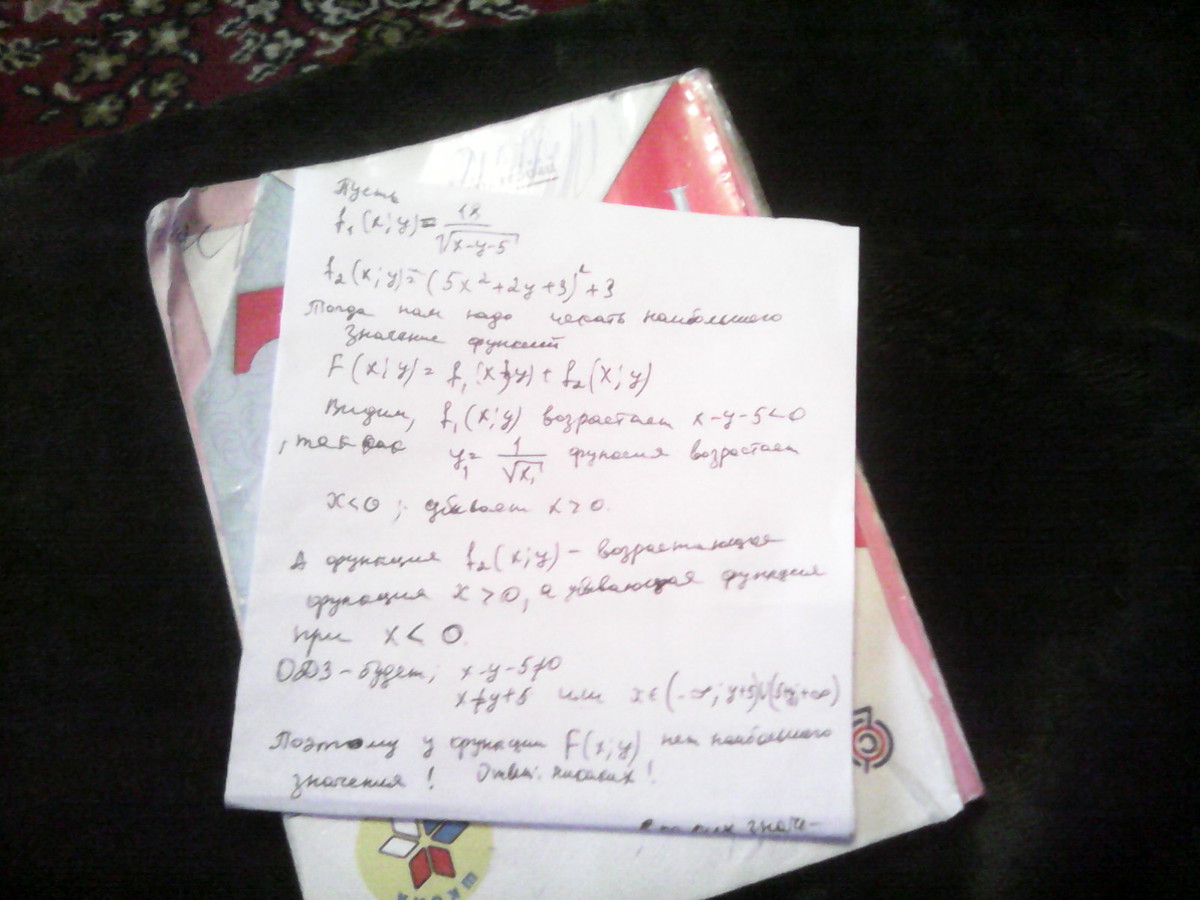 Пусть
f₁(x; y) = 18/√(x-y-5)
f₂(x; y) = (5x²+2y+3)²+3
Тогда нам надо искать наибольшого
значение функций
F(x; y) = f₁(x; y) + f₂(x; y)
Видим, f₁(x; y) возрастает x-y-5<0
, так как y₁ = 1/√x₁ функсия возрастает
x<0; убивает x>0.
А функция f₂(x; y) - возрастающая
функция x>0, а убивающая функция
при x<0.
ОДЗ - будет; x-y-5≠0
x≠y+5 или x∈(-∞; y+5)∪(5+y; +∞)
Поэтому у функции F(x; y) нет наибольшого
значения! Ответ: никаких!